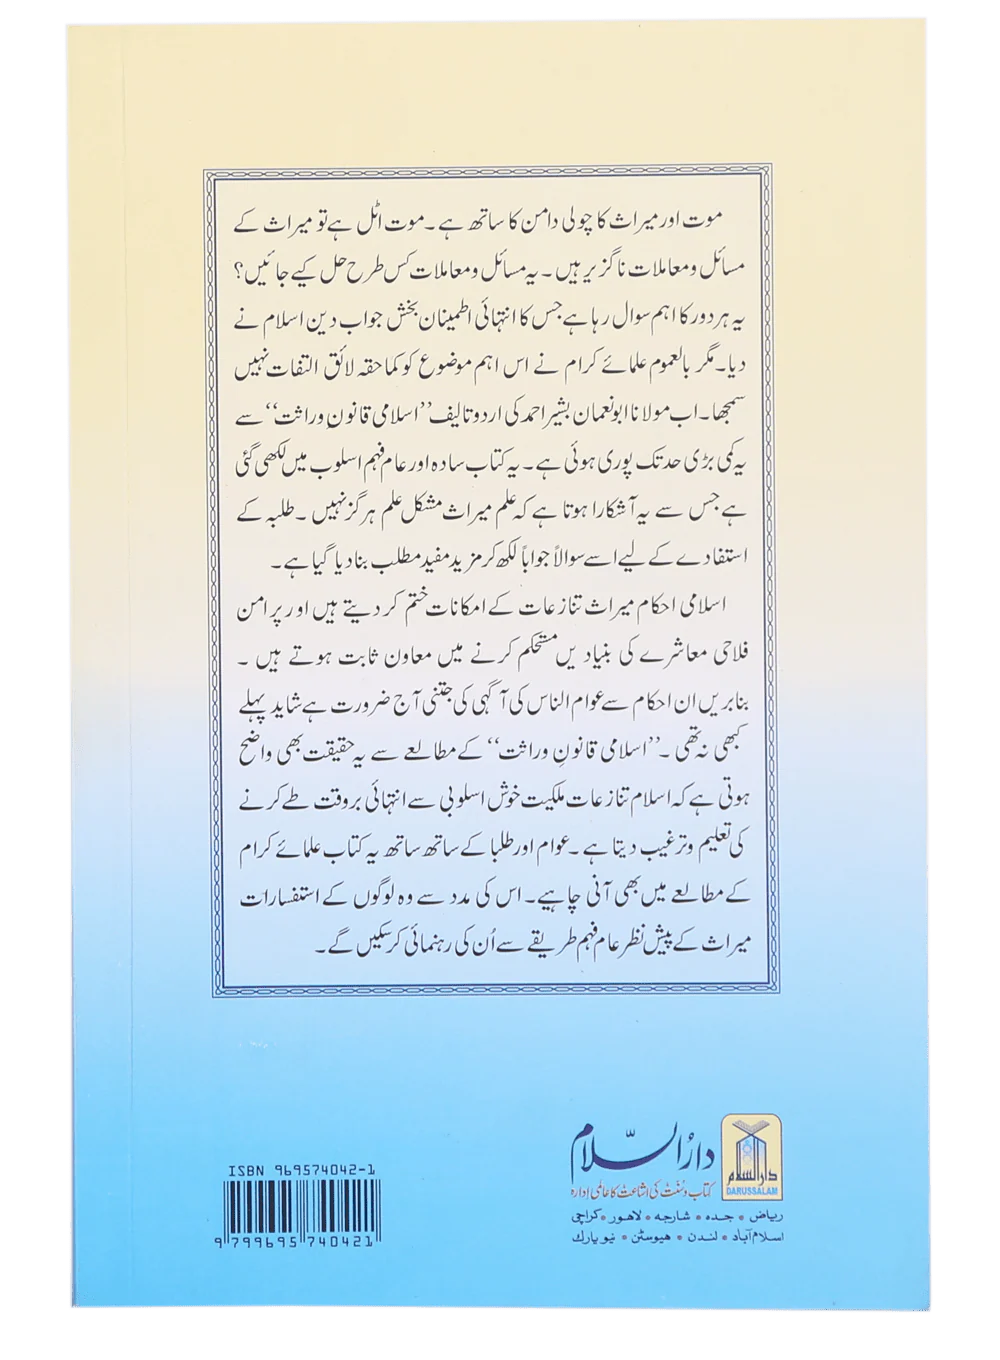 موت اور میراث کا چولی دامن کا ساتھ ہے۔ موت اٹل ہے تو میراث کے
مسائل و معاملات ناگزیر ہیں۔ یہ مسائل و معاملات کس طرح حل کیے جائیں؟
یہ ہر دور کا اہم سوال رہا ہے جس کا انتہائی اطمینان بخش جواب دین اسلام نے
دیا۔ مگر بالعموم علمائے کرام نے اس اہم موضوع کو کما حقہ لائق التفات نہیں
سمجھا۔ اب مولانا ابو نعمان بشیر احمد کی اردو تالیف ’’اسلامی قانونِ وراثت‘‘ سے
یہ کمی بڑی حد تک پوری ہوئی ہے۔ یہ کتاب سادہ اور عام فہم اسلوب میں لکھی گئی
ہے جس سے یہ آشکارا ہوتا ہے کہ علم میراث مشکل علم ہرگز نہیں۔ طلبہ کے
استفادے کے لیے اسے سوالاً جواباً لکھ کر مزید مفید مطلب بنا دیا گیا ہے۔
اسلامی احکام میراث تنازعات کے امکانات ختم کر دیتے ہیں اور پر امن
فلاحی معاشرے کی بنیادیں مستحکم کرنے میں معاون ثابت ہوتے ہیں۔
بنابریں ان احکام سے عوام الناس کی آگہی کی جتنی آج ضرورت ہے شاید پہلے
کبھی نہ تھی۔ ’’اسلامی قانونِ وراثت‘‘ کے مطالعے سے یہ حقیقت بھی واضح
ہوتی ہے کہ اسلام تنازعات ملکیت خوش اسلوبی سے انتہائی بروقت طے کرنے
کی تعلیم و ترغیب دیتا ہے۔ عوام اور طلبا کے ساتھ ساتھ یہ کتاب علمائے کرام
کے مطالعے میں بھی آنی چاہیے۔ اس کی مدد سے وہ لوگوں کے استفسارات
میراث کے پیش نظر عام فہم طریقے سے اُن کی رہنمائی کر سکیں گے۔
دارالسلام
دارالسلام
DARUSSALAM
کتاب و سنت کی اشاعت کا عالمی ادارہ
ریاض • جدہ • شارجہ • لاہور • کراچی
اسلام آباد • لندن • ہیوسٹن • نیو یارک
ISBN 969574042-1
9 799695 740421